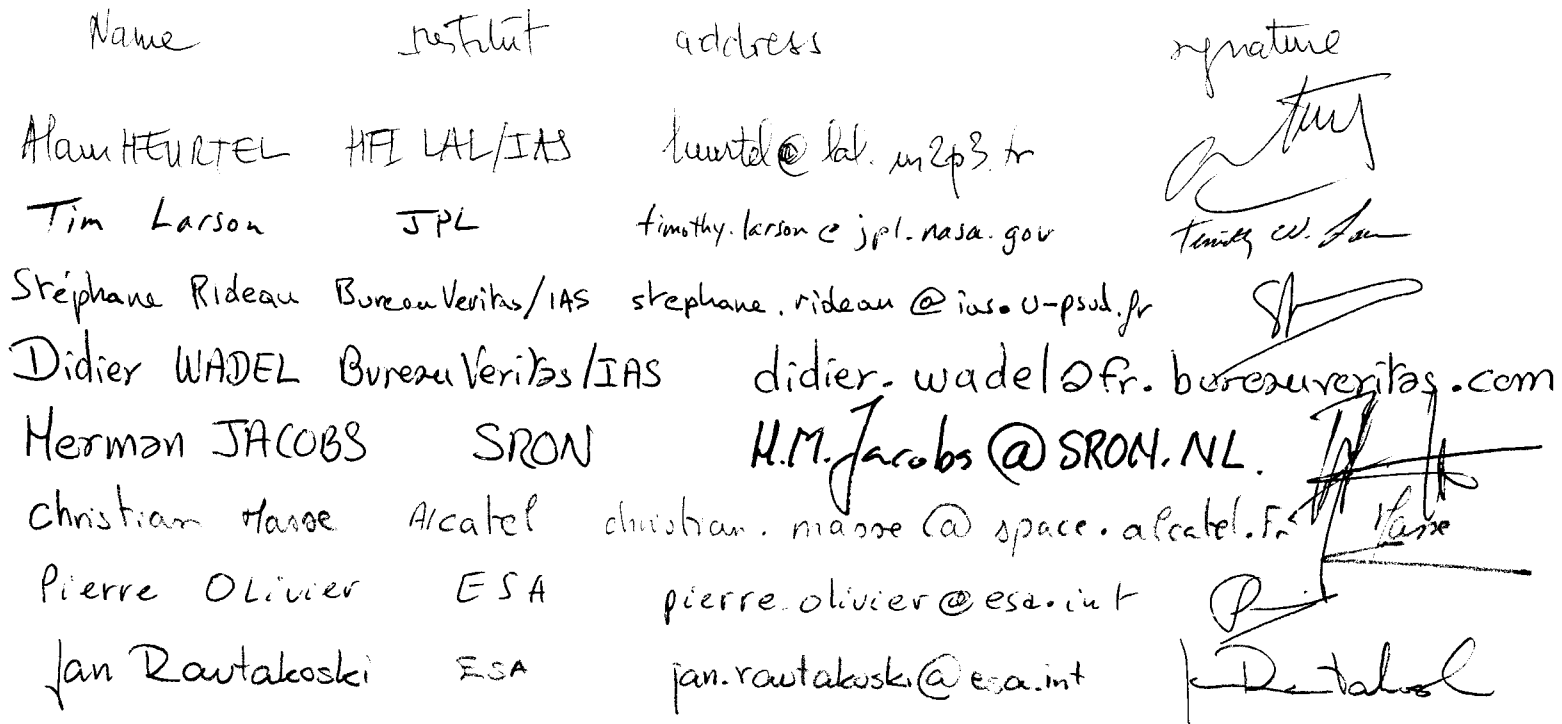 Name institut address signature
Alain HEURTEL HFI LAL/IAS heurtel@lal.in2p3.fr
Tim Larson JPL timothy.larson@jpl.nasa.gov Timothy W.
Stéphane Rideau Bureau Veritas/IAS stephane.rideau@ias.u-psud.fr
Didier WADEL Bureau Veritas/IAS didier.wadel@fr.bureauveritas.com
Herman JACOBS SRON H.M.Jacobs@SRON.NL.
Christian Masse Alcatel christian.masse@space.alcatel.fr Masse
Pierre OLivier ESA pierre.olivier@esa.int
Jan Rautakoski ESA jan.rautakoski@esa.int